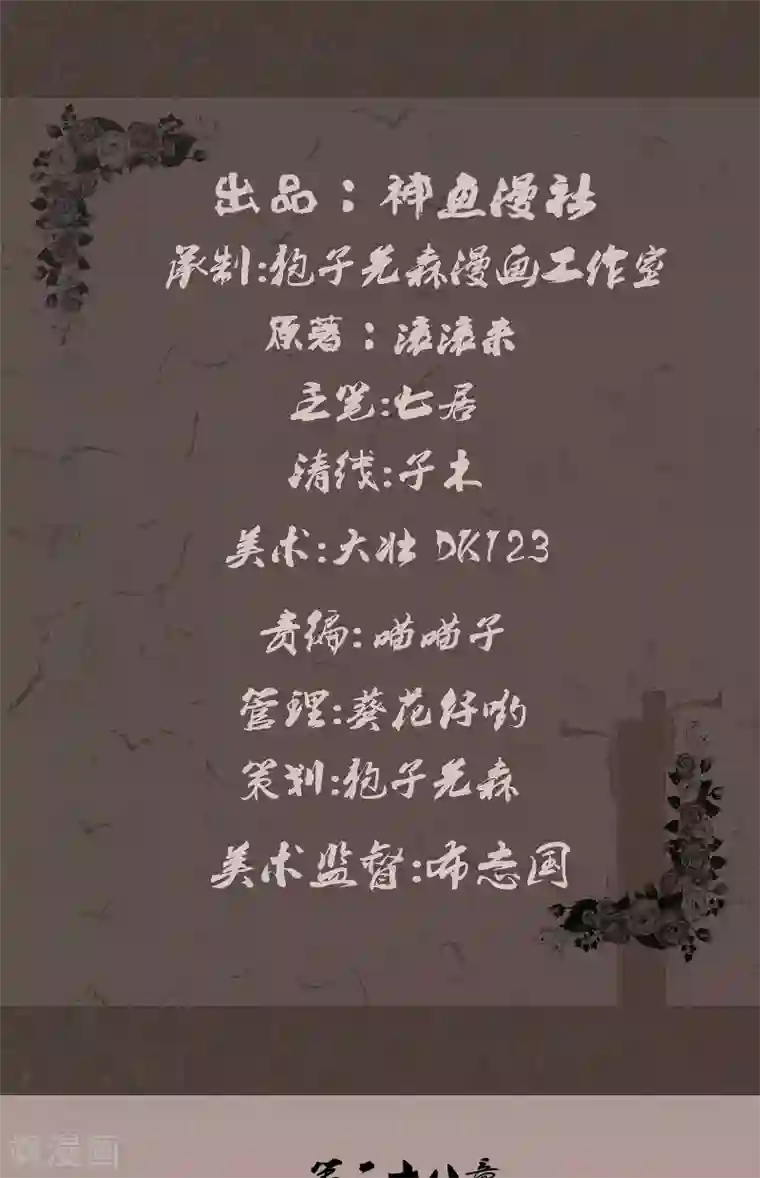 出品：神鱼漫社
承制:抱子羌森漫画工作室
原著：滚滚来
主笔:七居
清线:子木
美术:大壮 DK123
责编:喵喵子
管理:葵花仔哟
策划:抱子羌森
美术监督:布志国
漫画